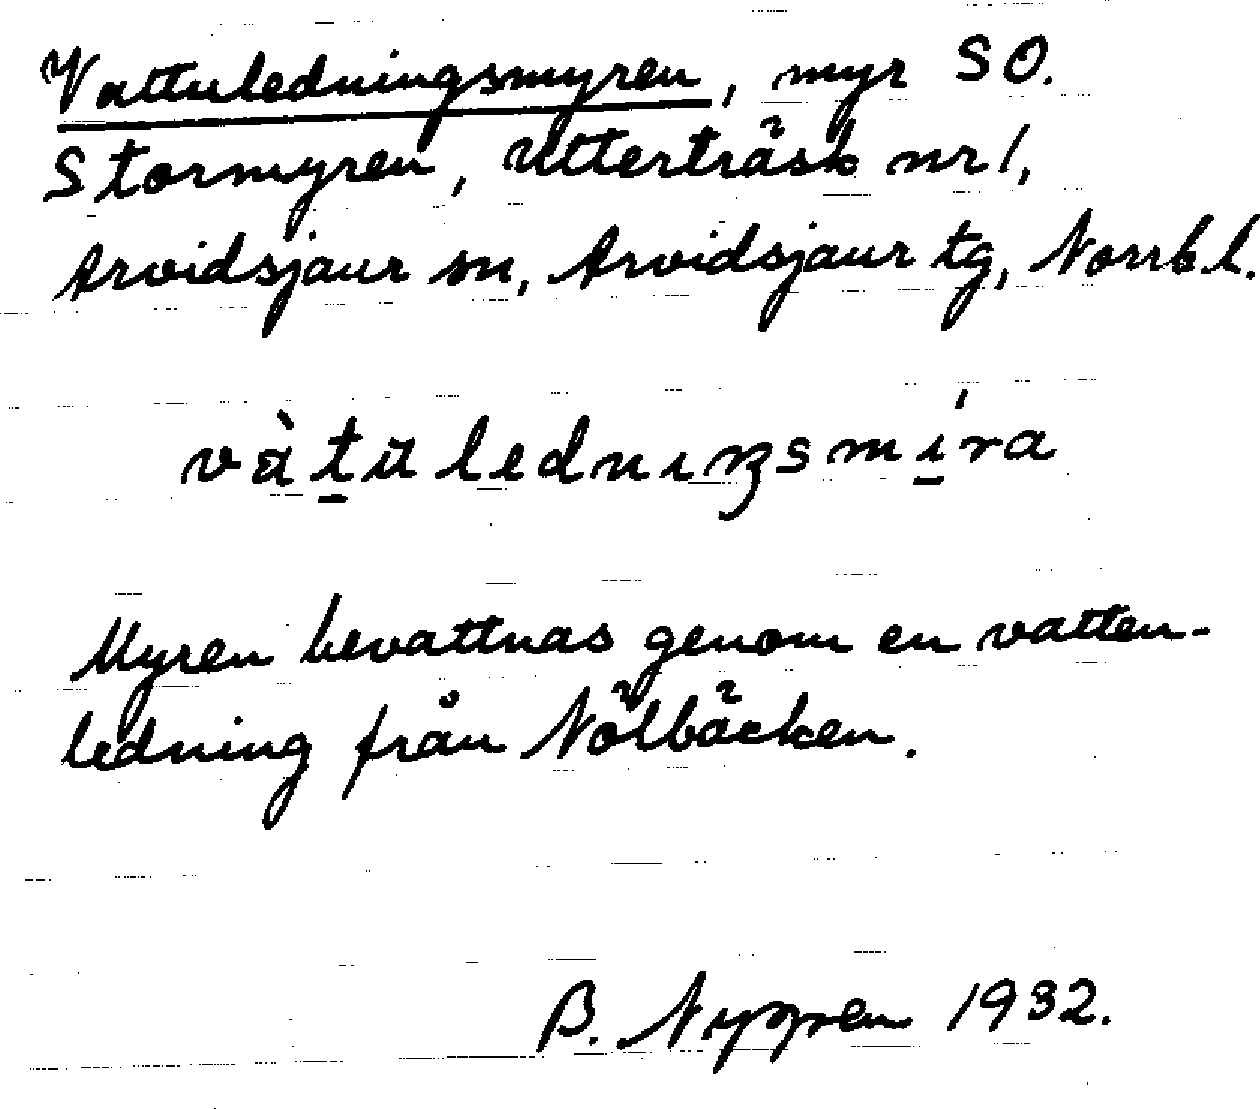 Vattuledningsmyren, myr SO.
Stormyren, Utterträsk nr 1,
Arvidsjaur sn, Arvidsjaur tg, Norrb. l.
Myren bevattnas genom en vatten-
ledning från Nölbäcken.
B. 1932.